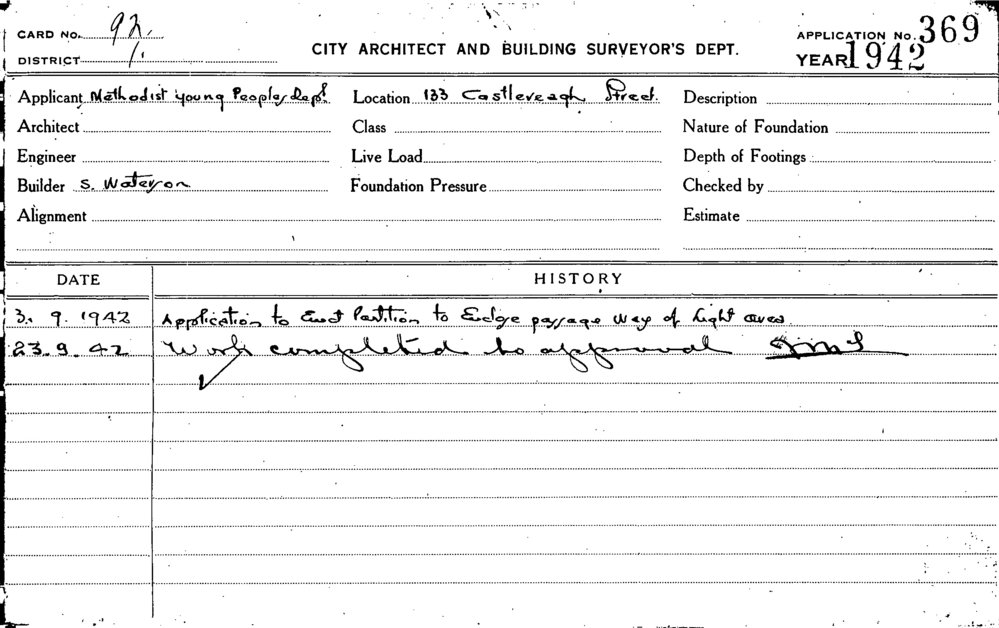 CARD No. 92
DISTRICT 1.
CITY ARCHITECT AND BUILDING SURVEYOR'S DEPT.
APPLICATION No. 369
YEAR 1942
Applicant Methodist Young Peoples Dept. Location 133 Castlereagh Street. Description
Architect Class Nature of Foundation
Engineer Live Load Depth of Footings
Builder S. Waterson Foundation Pressure Checked by
Alignment Estimate
DATE HISTORY
3. 9. 1942 Application to Erect Partition to passage way of Light area
23.9.42 Work completed to approval